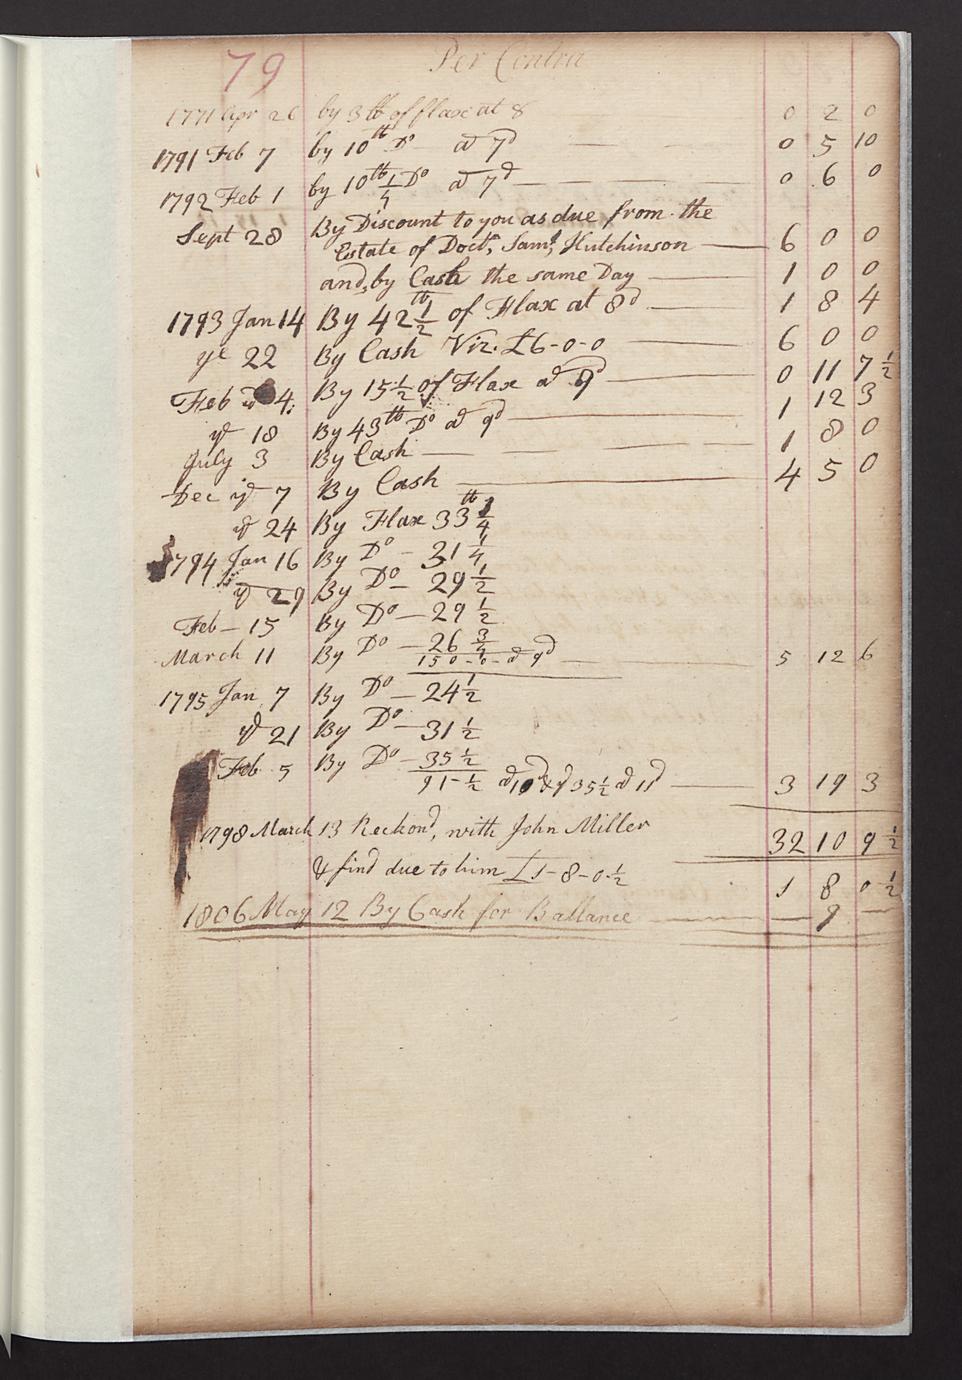 79 Per Contra
1771 Apr 26 by 3 lb of flax at 8 0 2 0
1791 Feb 7 by 10 lb Do at 7d 0 5 10
1792 Feb 1 by 10 lb 1/4 Do at 7d 0 6 0
Sept 28 By Discount to you as due from the
Estate of Doctr, Saml, Hutchinson 6 0 0
and, by Cash the same Day 1 0 0
1793 Jan 14 By 42 lb 1/2 of Flax at 8d 1 8 4
ye 22 By Cash Viz. £6-0-0 6 0 0
Feb ye 4; By 15 1/2 of Flax at 9d 0 11 7 1/2
ye 18 By 43 lb Do at 9d 1 12 3
July 3 By Cash 1 8 0
Dec ye 7 By Cash 4 5 0
ye 24 By Flax 33 lb 1/4
1794 Jan 16 By Do - 31 1/4
ye 29 By Do - 29 1/2
Feb - 15 By Do - 29 1/2
March 11 By Do - 26 3/4
150-0- at 9d 5 12 6
1795 Jan 7 By Do - 24 1/2
ye 21 By Do - 31 1/2
Feb 5 By Do - 35 1/2
91-1/2 at 10d & ye 35 1/2 at 11d 3 19 3
1798 March 13 Reckond, with John Miller 32 10 9 1/2
& find due to him £1-8-0-1/2 1 8 0 1/2
1806 May 12 By Cash for Ballance - 9 -